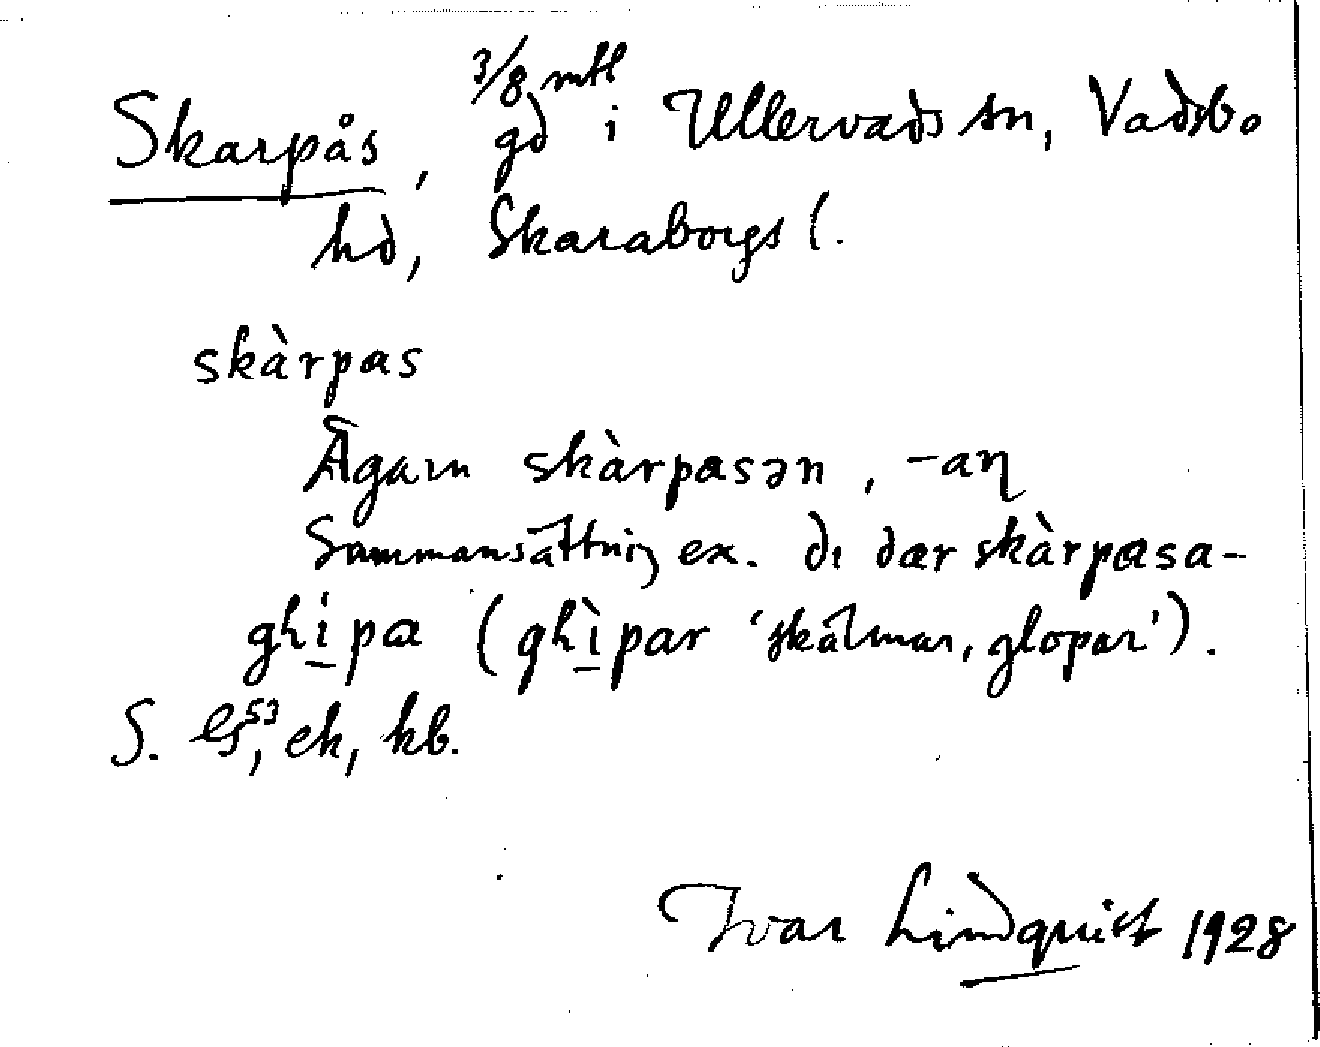 Skarpås, 3/8 mtl gd i Ullervads sn, Vadsbo
hd, Skaraborgs l.
skàrpas
Ägarn skàrpasən, -aη
Sammansättning ex. dı dær skàrpasa-
ghi̱pa (ghì̱par 'skålmar, glopar').
S. GS⁵³, ek, kb.
Ivar Lindquist 1928